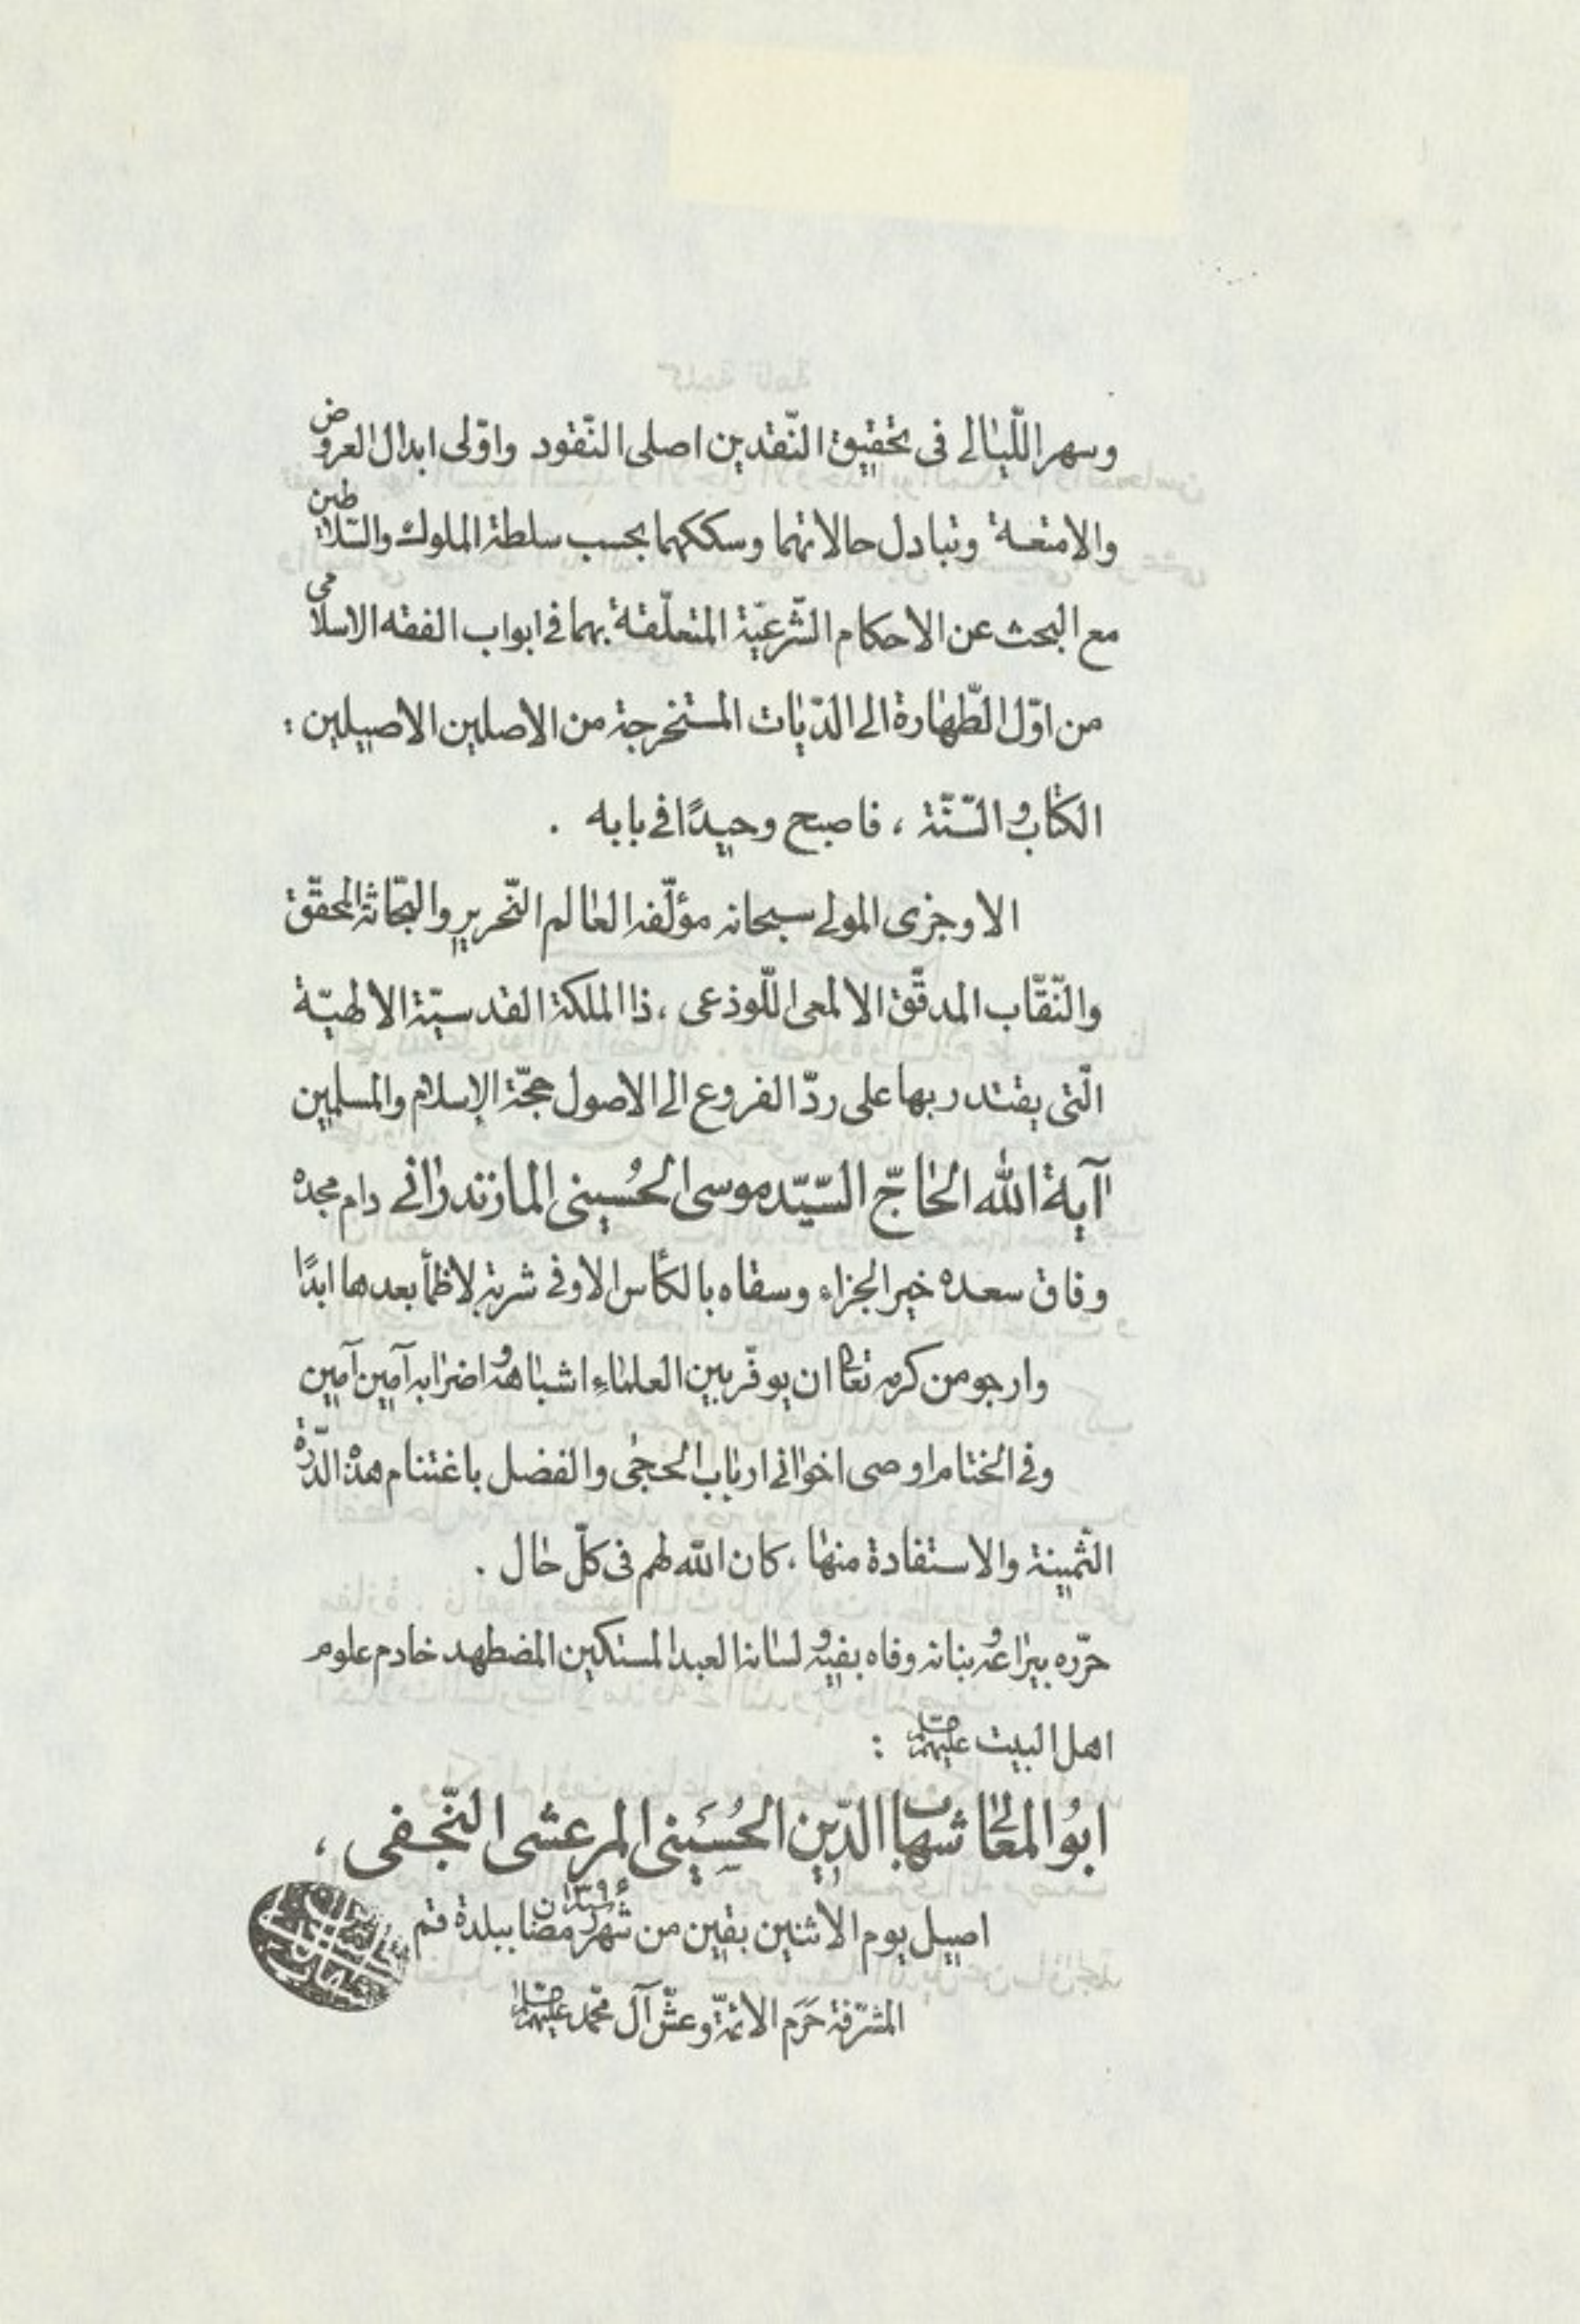 وسهر اللّيالي في تحقيق النّقدين اصلى النّقود واوّلى ابدال العروض
والامتعة وتبادل حالاتهما وسككهما بحسب سلطة الملوك والسّلاطين
مع البحث عن الاحكام الشّرعيّة المتعلّقة بهما في ابواب الفقه الاسلامى
من اوّل الطّهارة الى الدّيات المستخرجة من الاصلين الاصيلين :
الكتاب والسّنّة ، فاصبح وحيدًا في بابه .
الا وجزى المولى سبحانه مؤلّفه العالم النّحرير والبحّاثة المحقّق
والنّقّاب المدقّق الالمعى اللّوذعى ، ذا الملكة القدسيّة الالهيّة
الّتى يقتدر بها على ردّ الفروع الى الاصول حجّة الإسلام والمسلمين
آية الله الحاجّ السّيّد موسى الحُسينى المازندرانى دام مجده
وفاق سعده خير الجزاء وسقاه بالكأس الاوفى شربة لا ظمأ بعدها ابدًا
وارجو من كرمه تعالى ان يوفّر بين العلماءِ اشباهه واضرابه آمين آمين
وفى الختام اوصى اخوانى ارباب الحجى والفضل باغتنام هذه الدّرّة
الثّمينة والاستفادة منها ، كان الله لهم فى كلّ حال .
حرّره بيراعه وبنانه وفاه بفيه ولسانه العبد المستكين المضطهد خادم علوم
اهل البيت عليهم :
ابوُ المعالى شهاب الدّين الحُسَينى المرعشى النّجفى ،
اصيل يوم الاثنين بقين من شهر رمضان ١٣٩٤ ببلدة قم
المشرّفة حَرَم الائمّة وعشّ آل محمّد عليهم